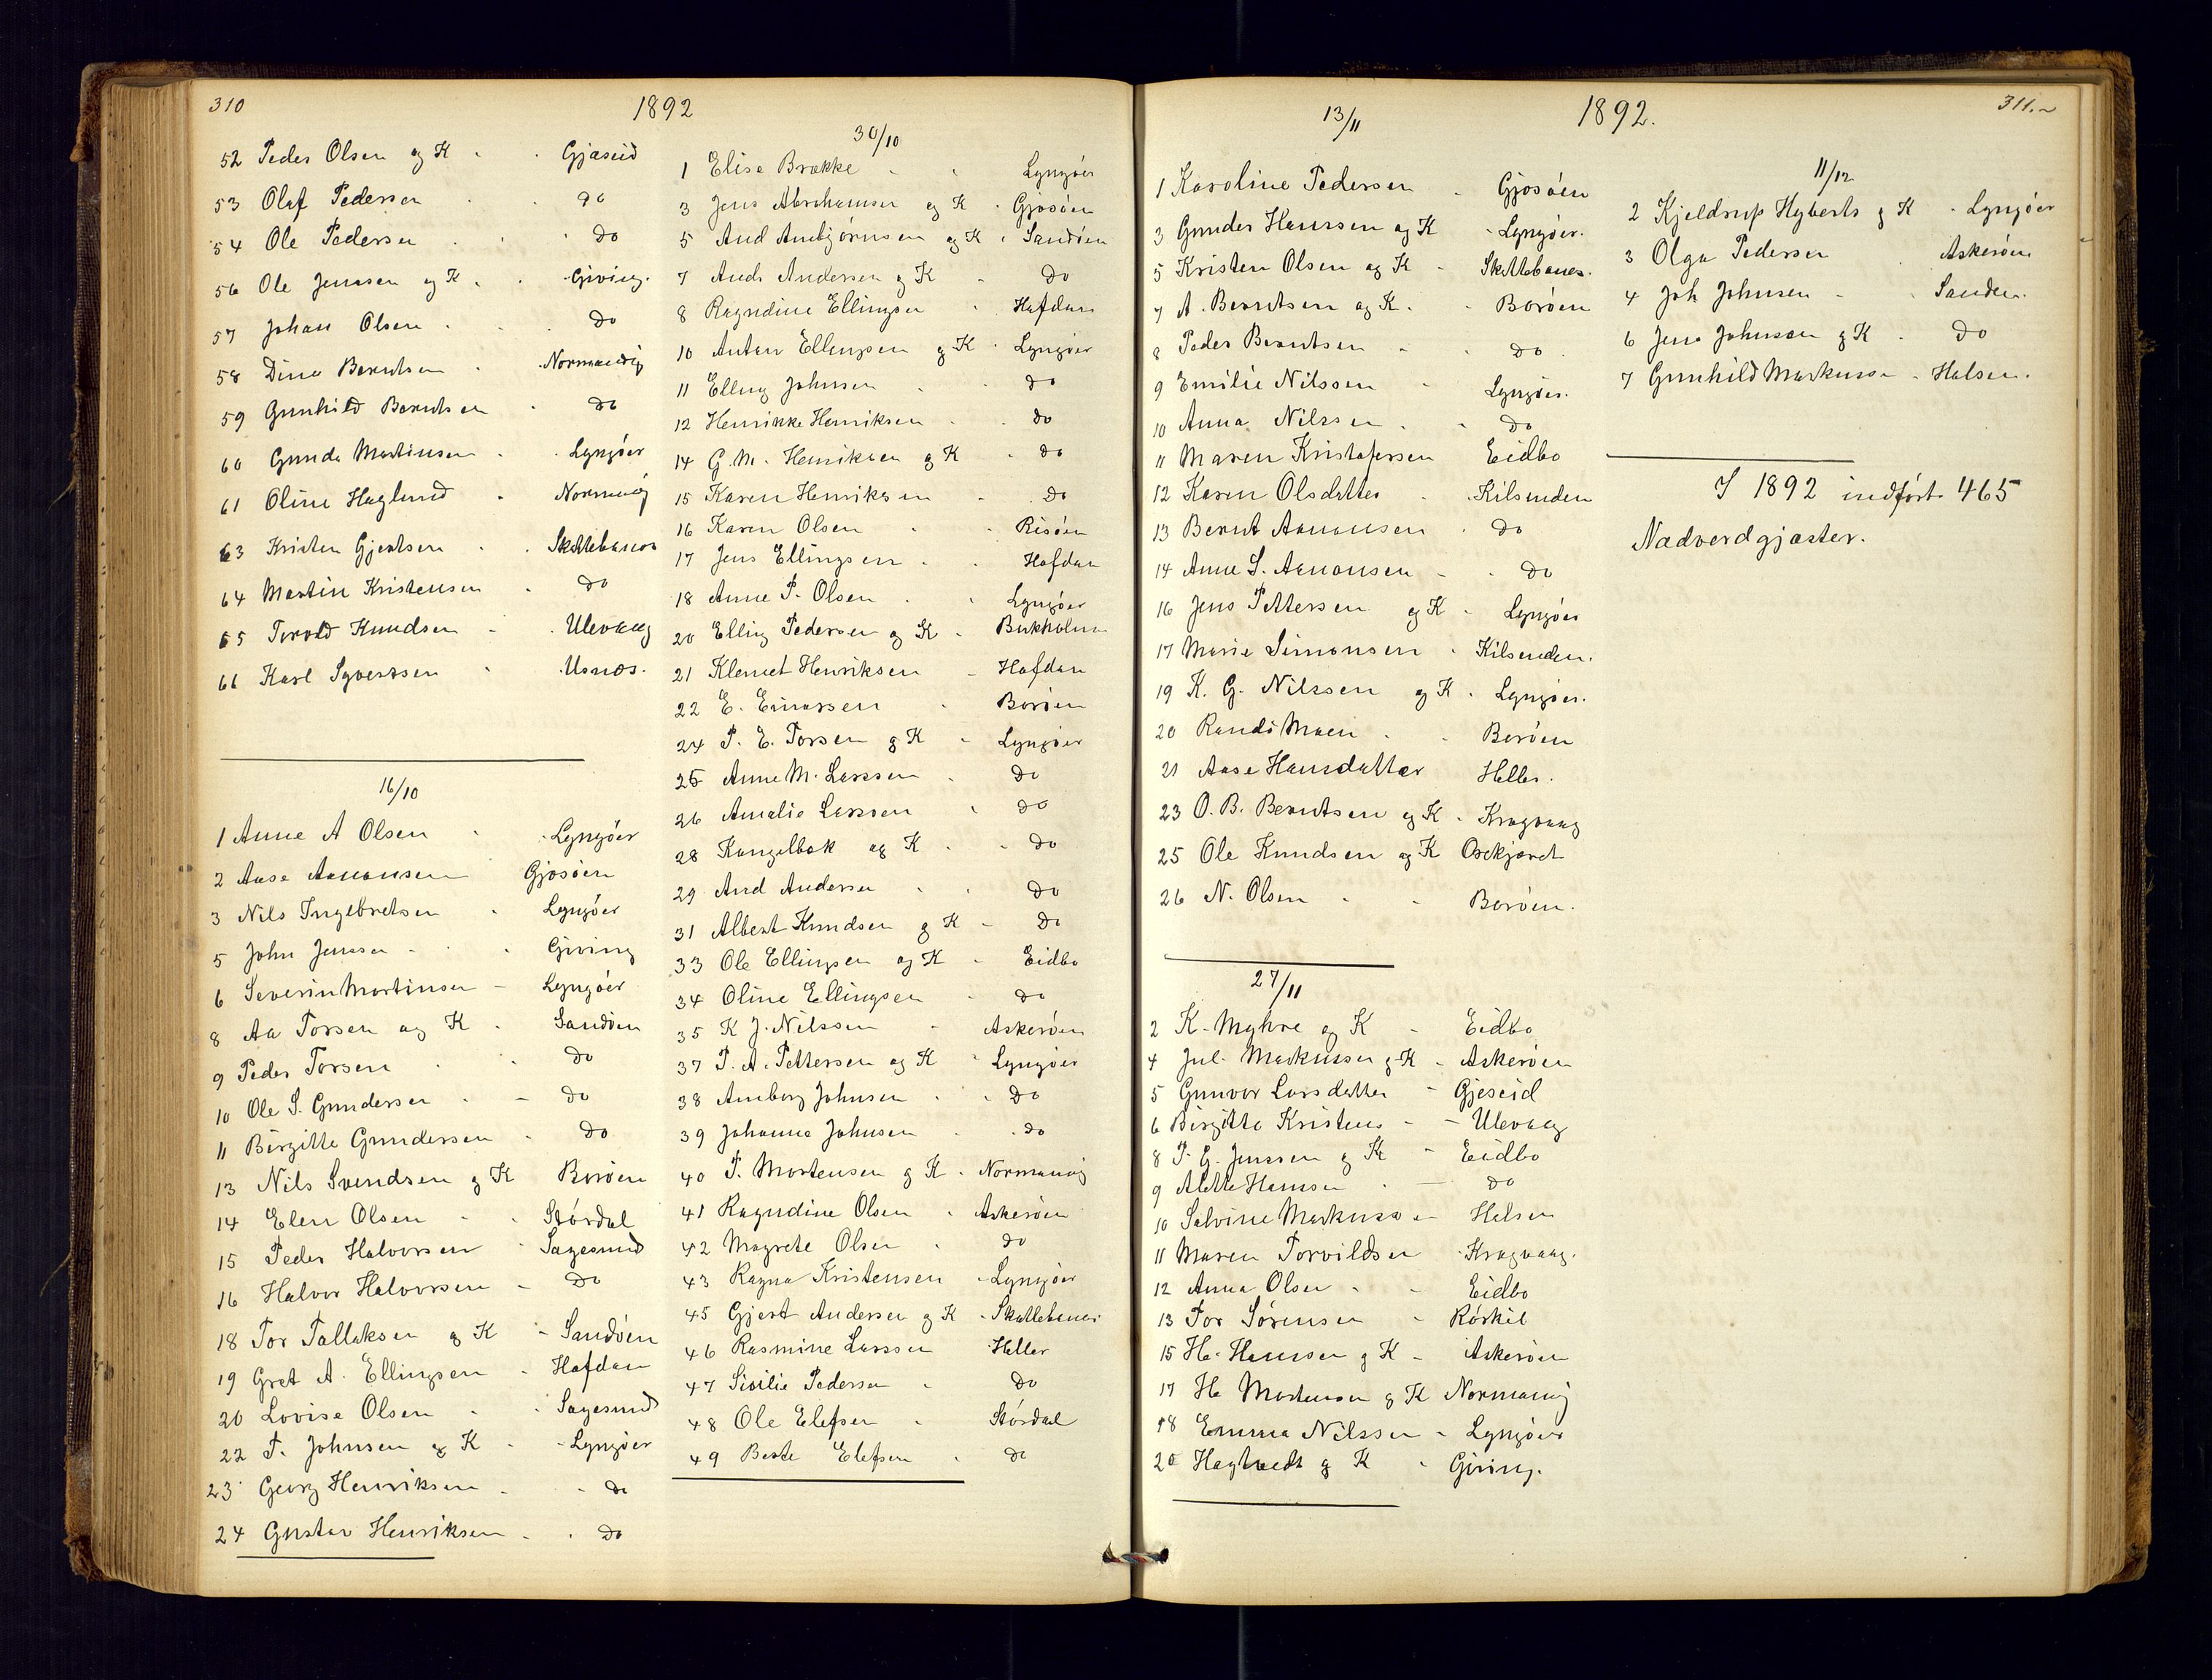 310
1892
52 Peder Olsen og K - - Gjæseid
53 Olaf Pedersen - - do
54 Ole Pedersen - - do
56 Ole Jenssen og K. - Giving.
57 Johan Olsen - - do
58 Dina Berntsen - Normandvig
59 Gunhild Berntsen - do
60 Gunda Martinsen - Lyngöer
61 Oline Haglund - Normanvig
63 Kristen Gjertsen - Skottebanes
64 Martin Kristensen - do
65 Torvold Knudsen - Ulevaag
66 Karl Syversen - Usnes.
16/10
1 Anne A Olsen - Lyngöer
2 Aase Aanonsen Gjosöen
3 Nils Ingebretsen - Lyngöer
5 John Jenssen - - Giving
6 Severin Martinsen - Lyngöer
8 Aa Torsen og K - Sandöen
9 Peder Torsen - do
10 Ole S. Gundersen - do
11 Birgitte Gundersen - do
13 Nils Svendsen og K Boröen
14 Elen Olsen - - Stördal
15 Peder Halvorsen - Sagesund
16 Halvor Halvorsen - do
18 Tor Tallaksen og K - Sandöen
19 Gret A. Ellingsen - Hafdan
20 Lovise Olsen - - Sagesund
22 T. Johnsen og K - Lyngöer
23 Georg Henriksen - - do
24 Gustav Henriksen - - do
30/10
1 Elise Brække - - Lyngöer
3 Jens Abrahamsen og K - Gjosöen
5 And Anbjörnsen og K - Sandöen
7 Andr Andersen og K - do
8 Ragndine Ellingsen - Hafdan
10 Anton Ellingsen og K - Lyngöer
11 Elling Johnsen - - do
12 Henrikke Henriksen - do
14 G. M. Henriksen og K - do
15 Karen Henriksen - do
16 Karen Olsen - - Risöen
17 Jens Ellingsen - - Hafdan
18 Anne P. Olsen - - Lyngöer
20 Elling Pedersen og K - Birkholmen
21 Klemet Henriksen - Hafdan
22 E. Einarsen - Boröen
24 P. E. Torsen og K - Lyngöer
25 Anne M. Larssen - do
26 Amalie Larssen - do
28 Kangelbak og K - - do
29 And Andersen - - do
31 Albert Knudsen og K - do
33 Ole Ellingsen og K - Eidbo
34 Oline Ellingsen - do
35 K J. Nilssen - Askeröen
37 P. A. Pettersen og K - Lyngöer
38 Anborg Johnsen - - do
39 Johanne Johnsen - do
40 T. Mortensen og K - Normanvig
41 Ragndine Olsen - Askeröen
42 Magrete Olsen - do
43 Ragna Kristensen - Lyngöer
45 Gjert Andersen og K - Skottebanes
46 Rasmine Larssen Heller
47 Sisilie Pedersen - do
48 Ole Elefsen - Stördal
49 Berte Elefsen - do
1892.
311.
13/11
1 Karoline Pedersen - Gjosöen
3 Gunder Hanssen og K - Lyngöer.
5 Kristen Olsen og K - Skottebanes.
7 A. Berntsen og K. - Boröen
8 Peder Berntsen - - do
9 Emilie Nilssen - Lyngöer.
10 Anna Nilssen - - do
11 Maren Kristofersen Eidbo
12 Karen Olsdatter - Kilsunden
13 Bernt Aanonsen - do
14 Anne S. Aanonsen - - do
16 Jens Pettersen og K - Lyngöer
17 Marie Simonsen - Kilsunden.
19 K. G. Nilssen og K - Lyngöer.
20 Randi Moen - - Boröen
21 Aase Hansdatter Heller.
23 O. B. Berntsen og K - Kragvaag
25 Ole Knudsen og K Oxekjæret
26 N. Olsen - - Boröen.
27/11
2 K. Myhre og K - Eidbo
4 Jul. Markussen og K - Askeröen
5 Gunvor Larsdatter - Gjeseid
6 Birgitte Kristens - - Ulevaag
8 P. G. Jenssen og K - Eidbo
9 Alette Hansen - - do
10 Salvine Markussen - Halsen
11 Maren Torvildsen - Kragvaag.
12 Anna Olsen - - Eidbo
13 Tor Sörensen - Rörkil
15 H. Hanssen og K - Askeröen
17 H Mortensen og K Normanvig
18 Emma Nilssen - Lyngöer
20 Hagtvedt og K - Giving.
11/12
2 Kjeldrup Hyberts og K - Lyngöer
3 Olga Pedersen - Askeröen
4 Joh Johnsen - - Sanden.
6 Jens Johnsen og K - do
7 Gunhild Markussen - Halsen.
I 1892 indfört 465
Nadverdgjæster.